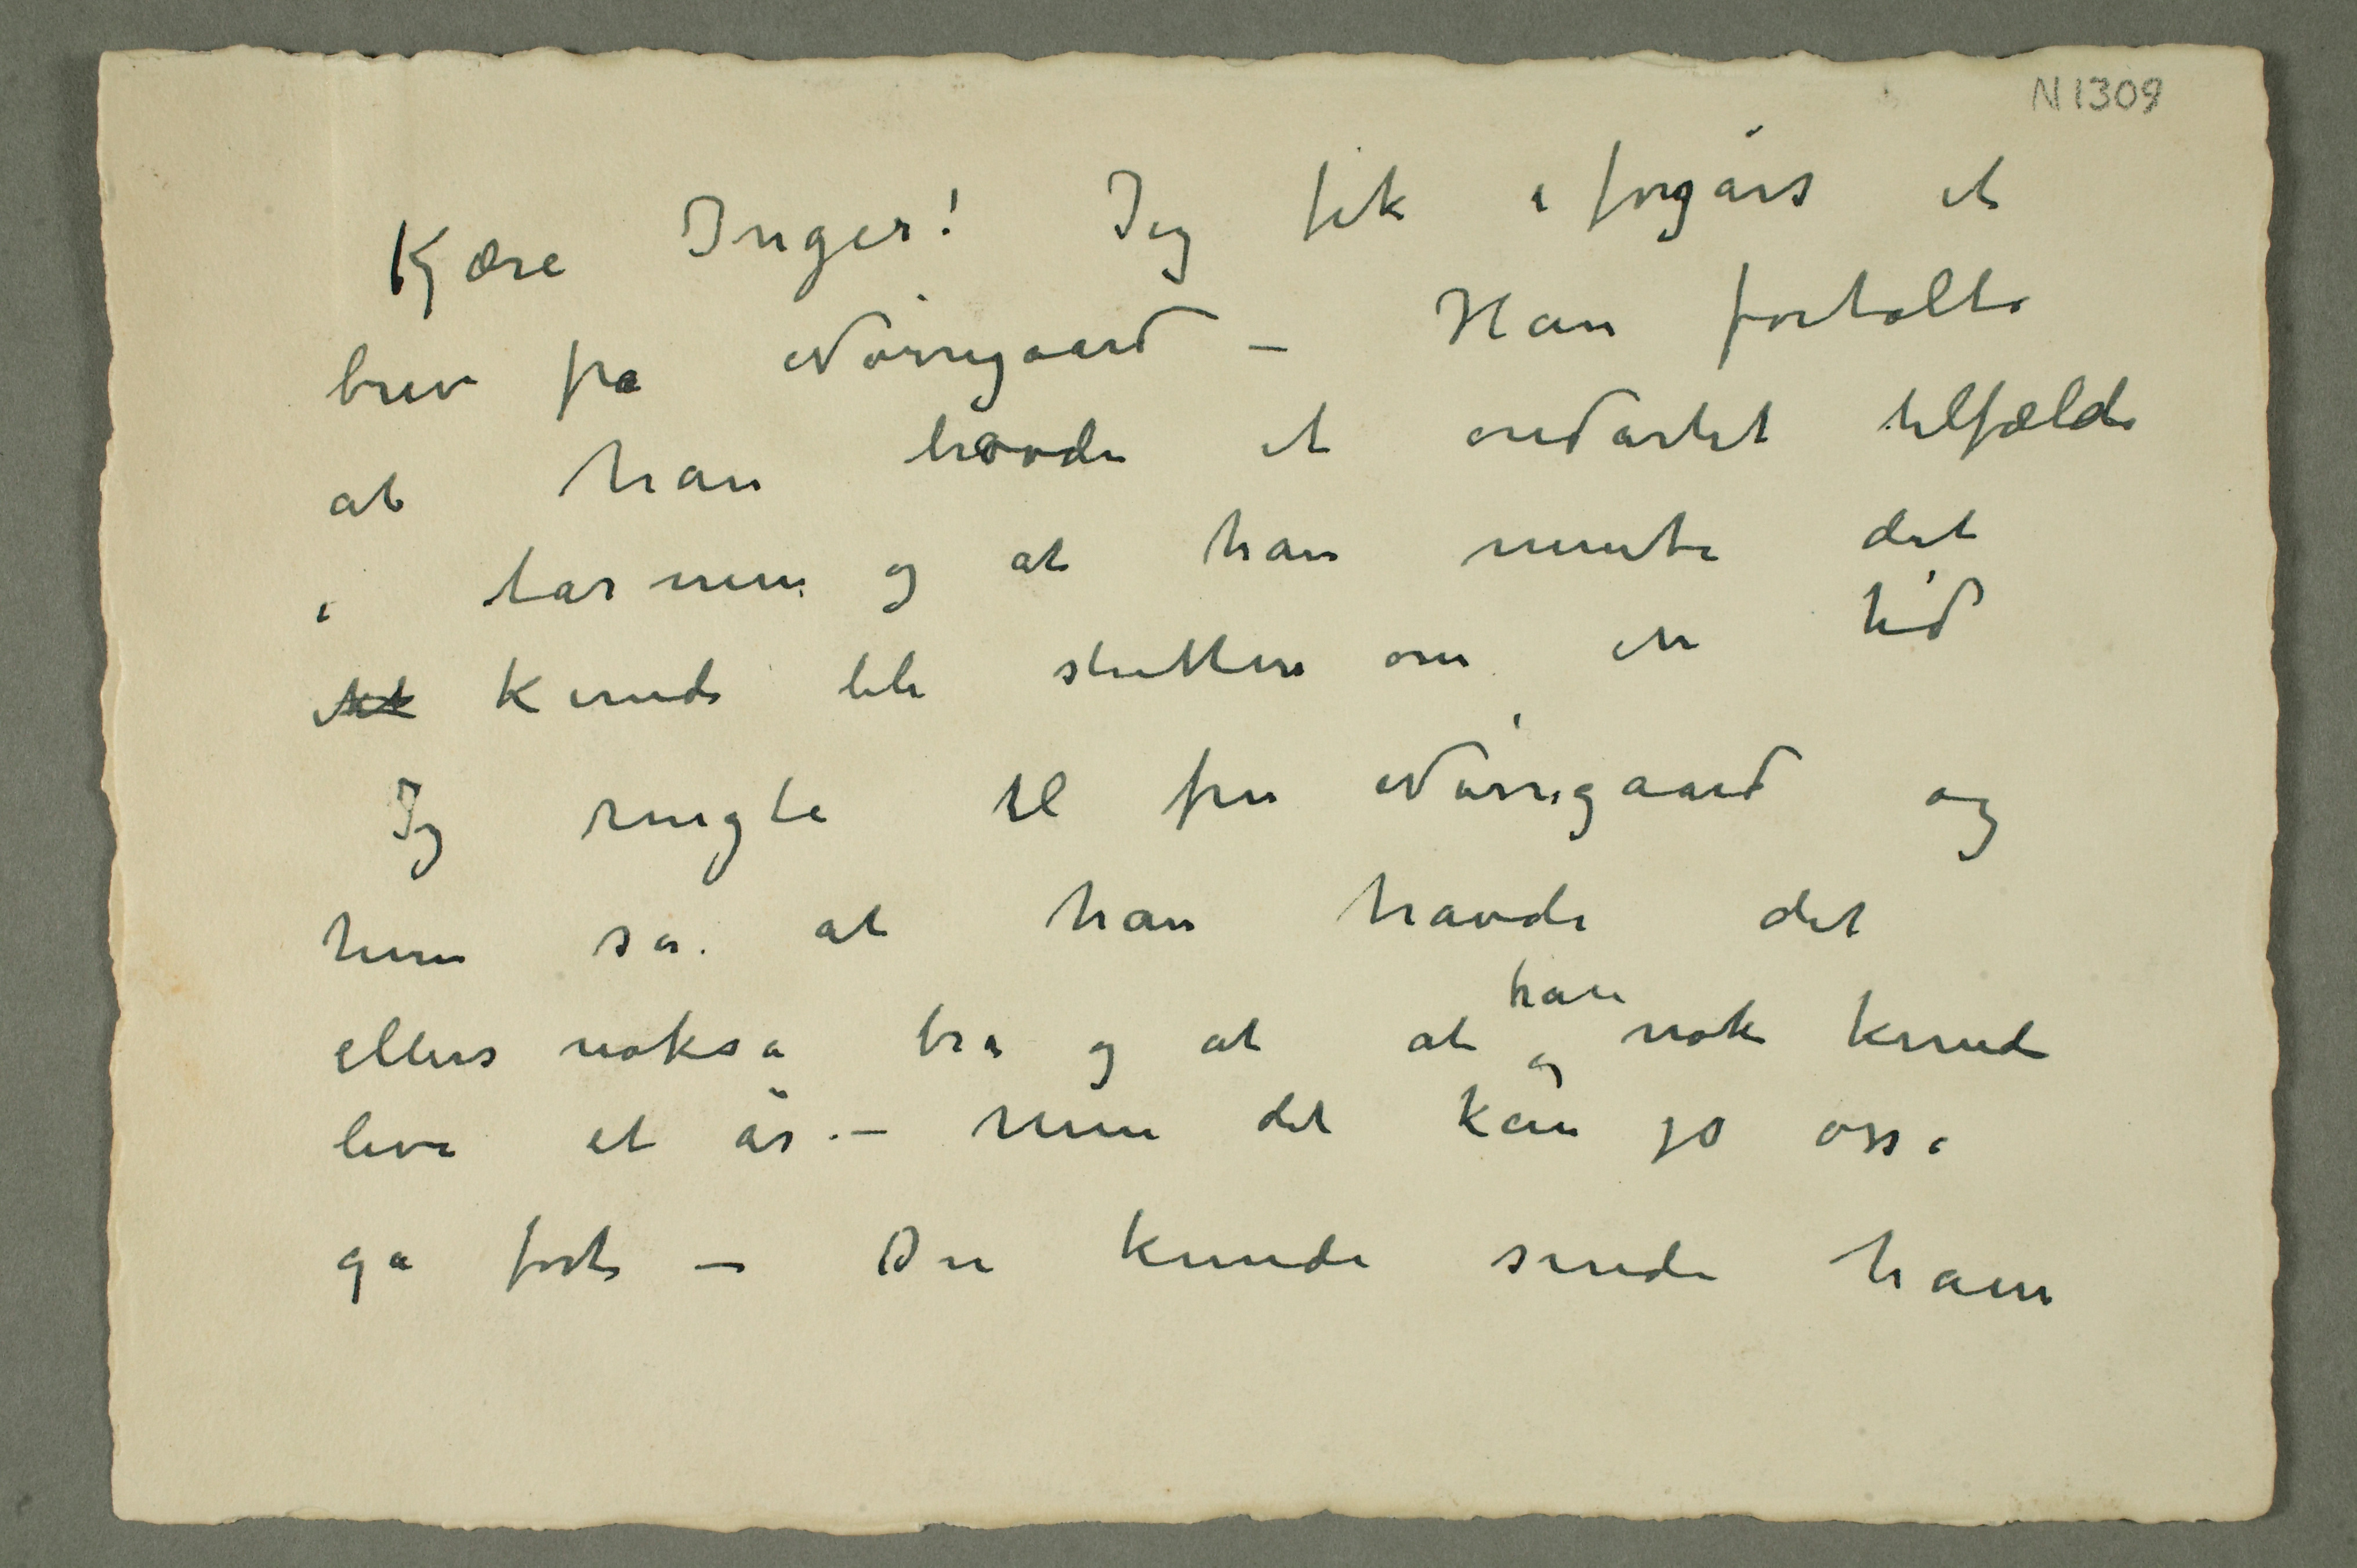 N 1309
Kjære Inger! Jeg fik i forgårs et
brev fra Nørregaard – Han fortalte
at han havde et ondartet tilfælde
i tarmene og at han mente det
ikke kunde bli slutten om en tid
Jeg ringte til fru Nørregaard og
hun sa. at han havde det
ellers noksa bra og at at han og nok kunde
leve et år. – Men det kan jo ossa
ga fort – Du kunde sende ham